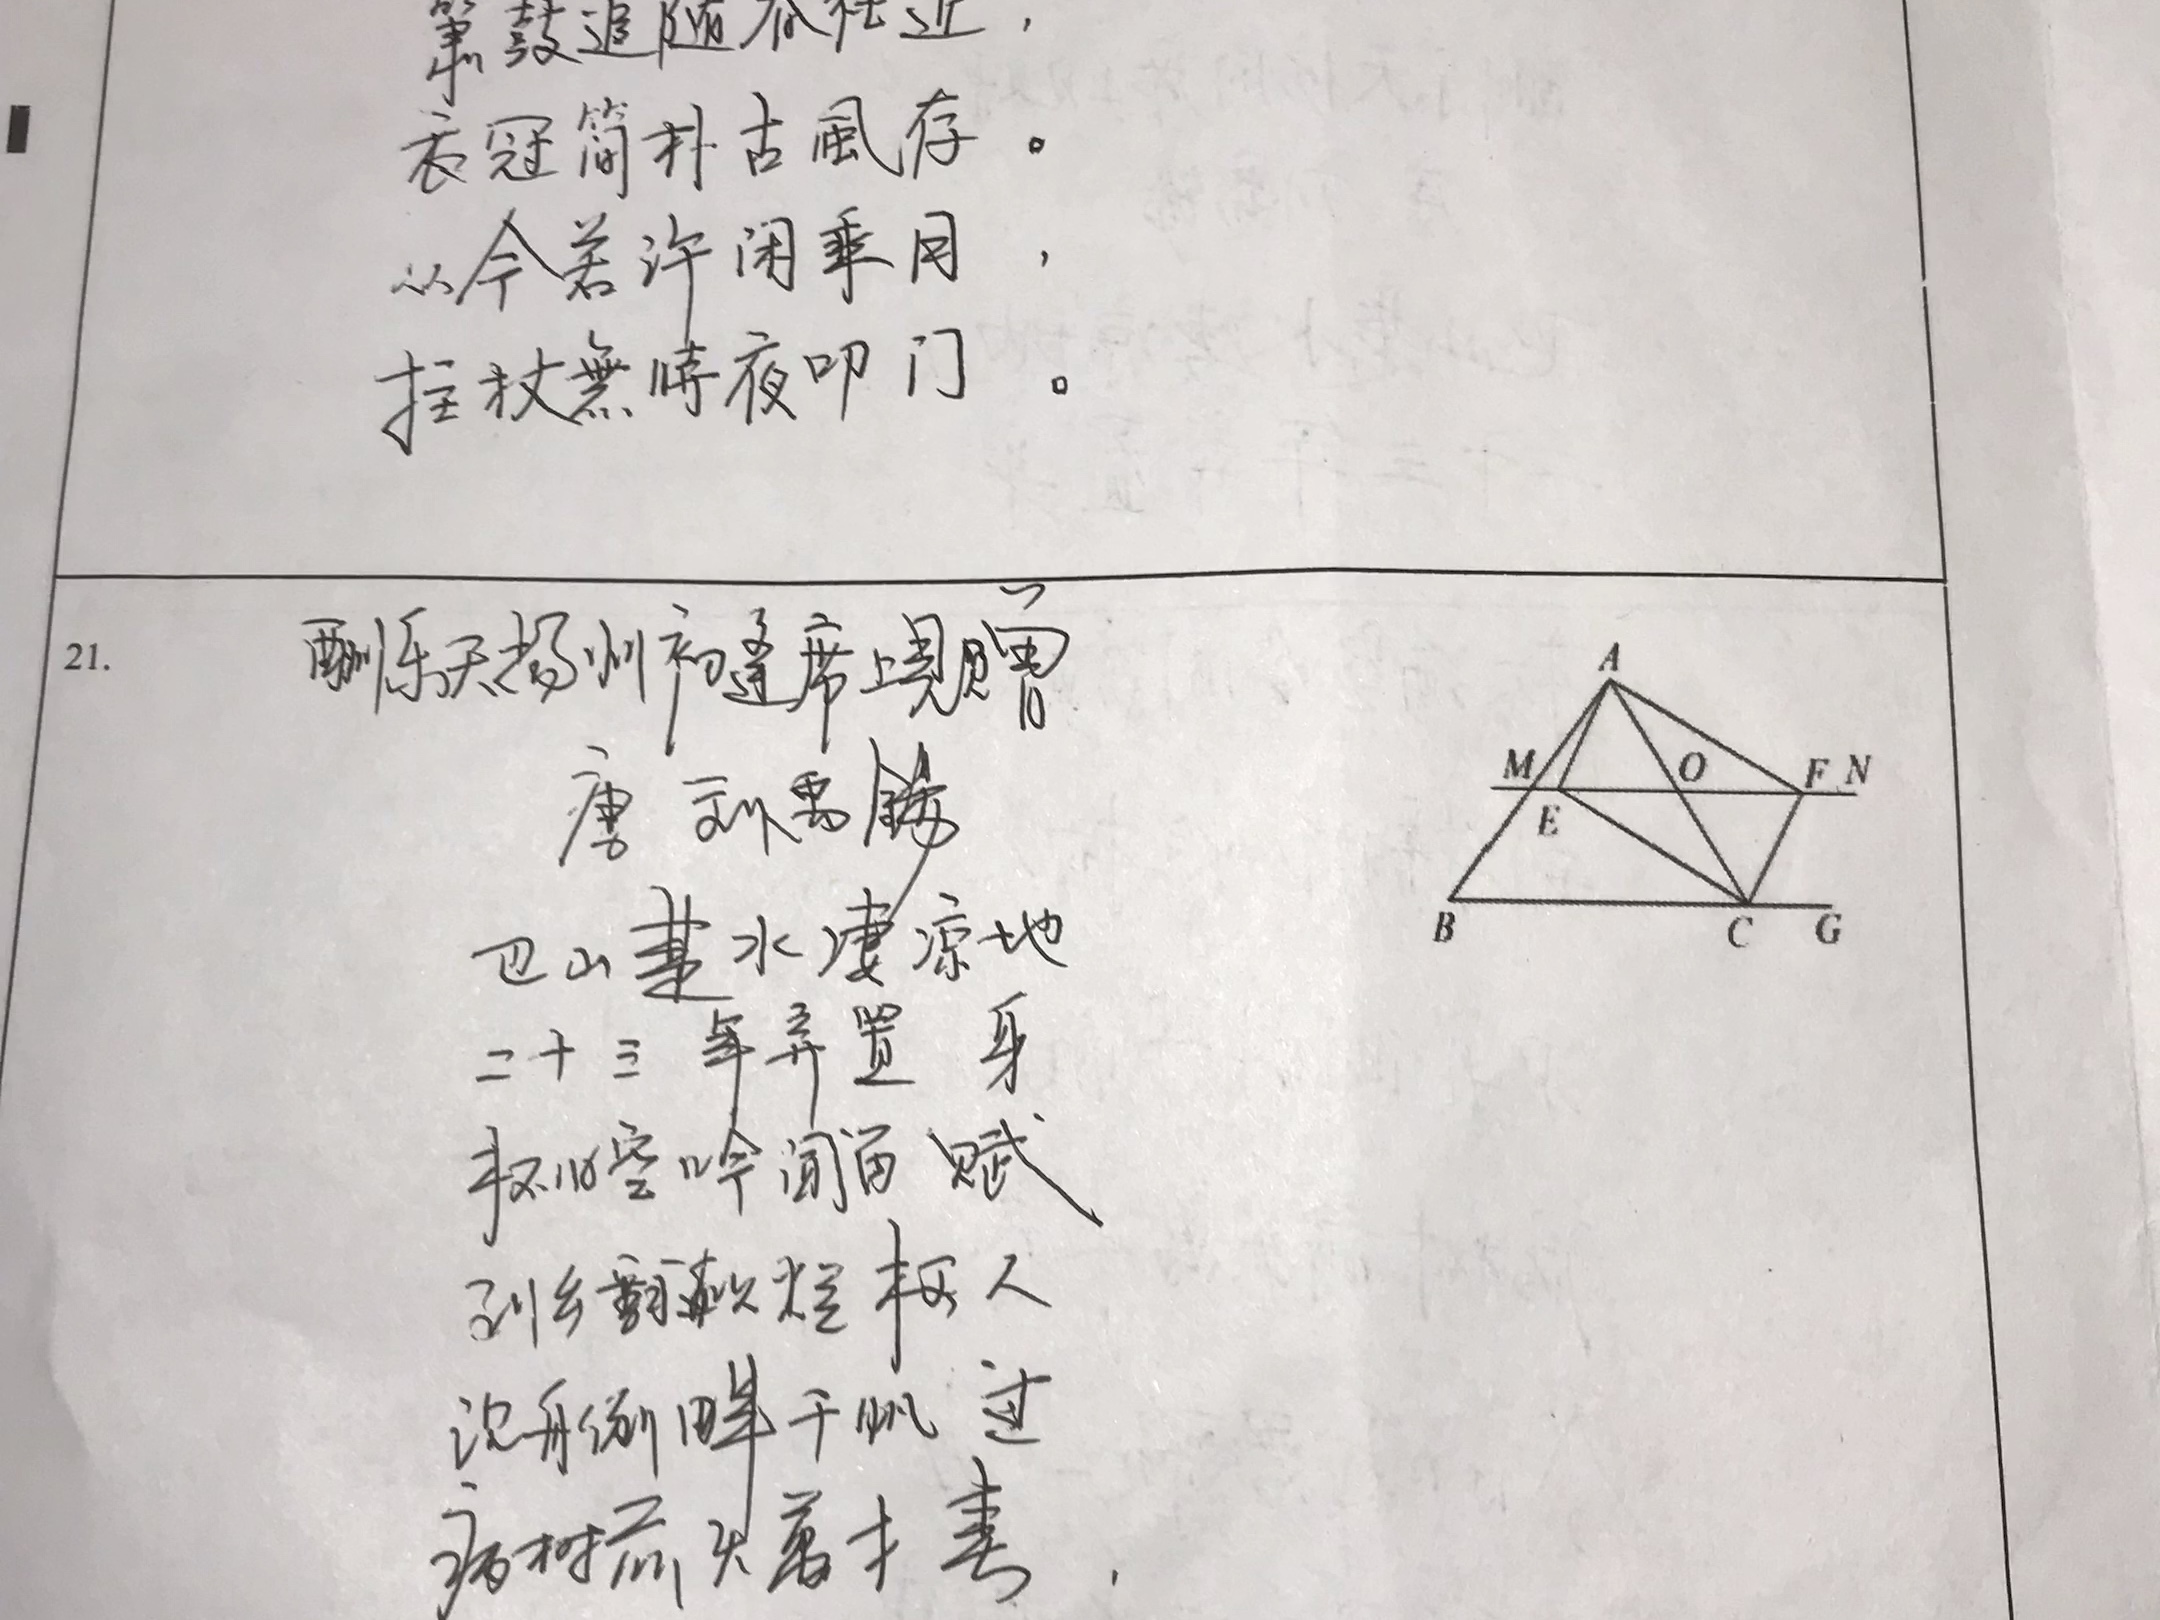 簫鼓追随春社近，
衣冠简朴古風存。
从今若许闲乘月，
拄杖無時夜叩门。
21.
酬乐天扬州初逢席上見贈
唐 刘禹錫
巴山楚水凄凉地
二十三年弃置身
怀旧空吟闻笛赋
到乡翻似烂柯人
沉舟侧畔千帆过
病树前头萬木春，
A
M O F N
E
B C G